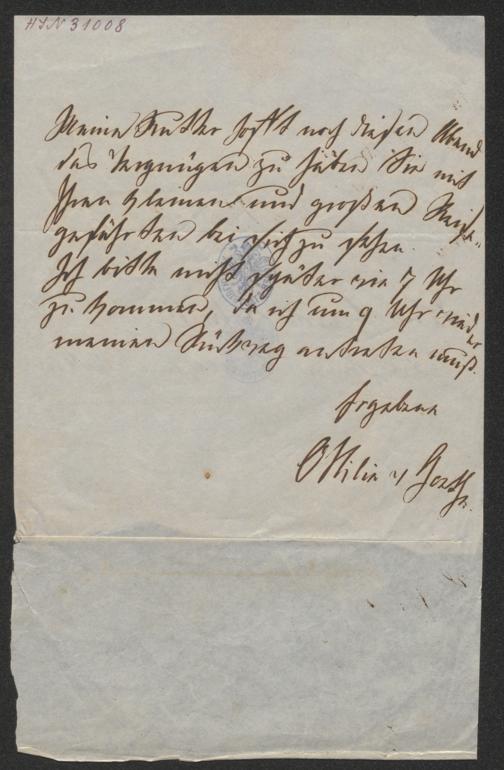 HIN 31008
Meine Mutter hofft noch diesen Abend
das Vergnügen zu haben Sie mit
Ihren kleinen und großen Reise-
gefährten bei sich zu sehen.
Ich bitte nicht später wie 7 Uhr
zu kommen, da ich um 9 Uhr wieder
meinen Rückweg antreten muß.
Ergebene
Ottilie v Goethe.